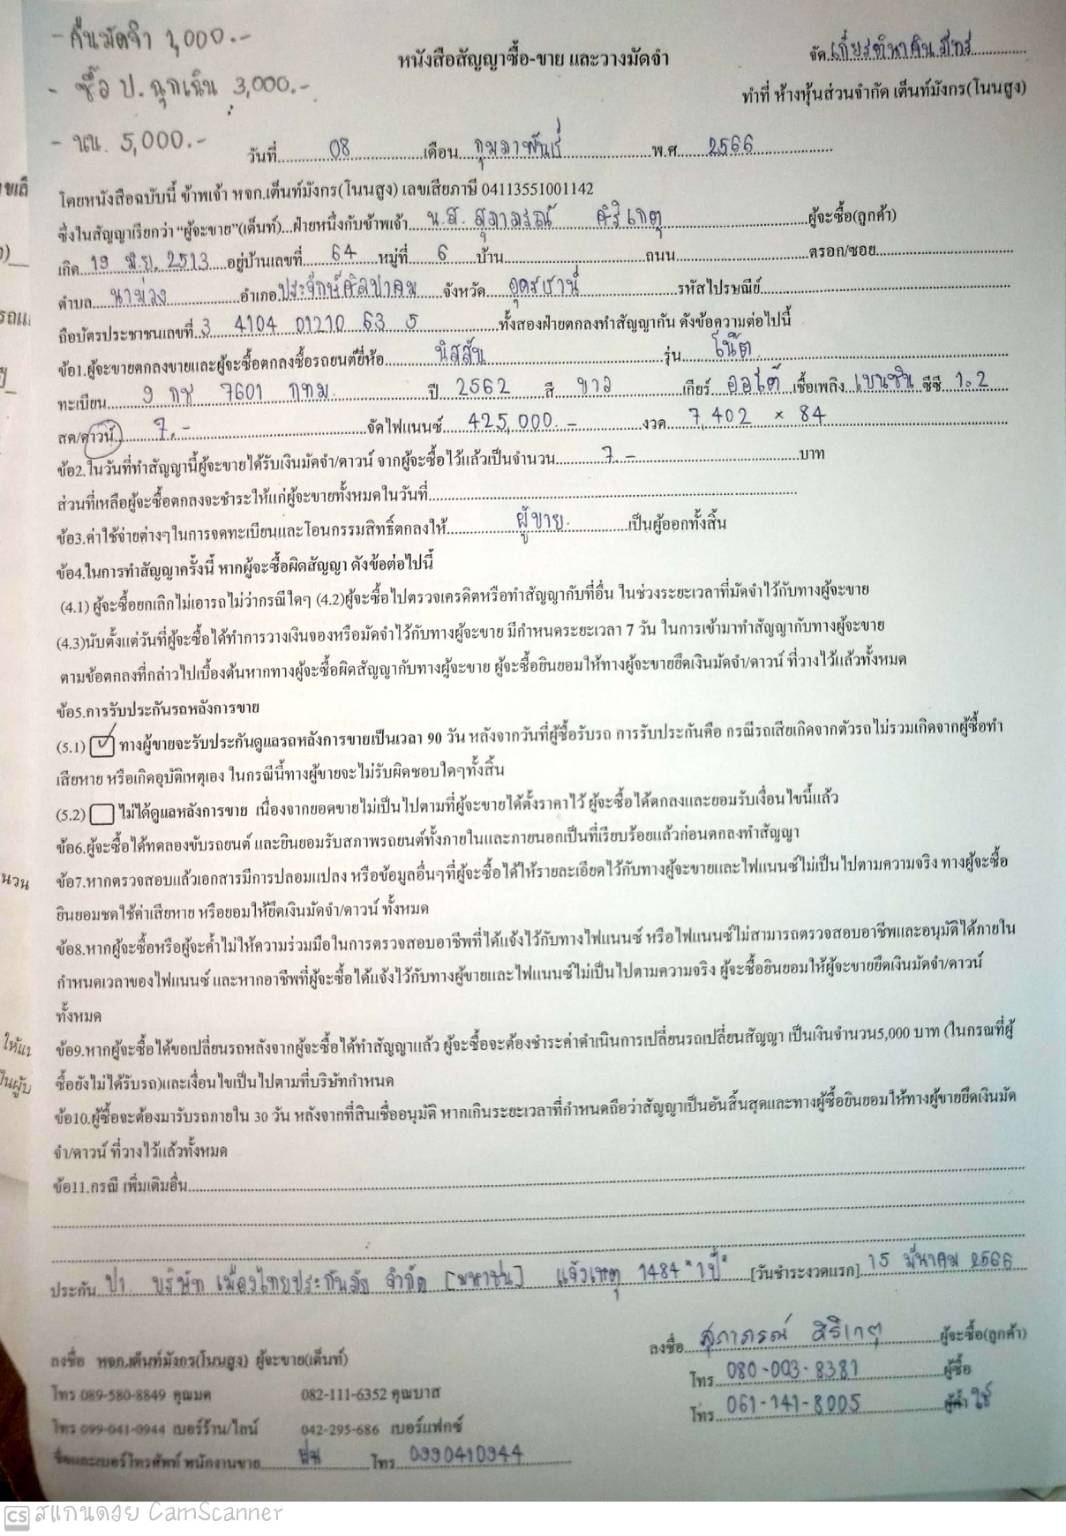 - คืนมัดจำ 1,000.-
- ซื้อ ป. ฉุกเฉิน 3,000.-
- นน. 5,000.-
จัด เกียรตินาคินภัทร
หนังสือสัญญาซื้อ-ขาย และวางมัดจำ
ทำที่ ห้างหุ้นส่วนจำกัด เต็นท์มังกร(โนนสูง)
วันที่ 08 เดือน กุมภาพันธ์ พ.ศ. 2566
โดยหนังสือฉบับนี้ ข้าพเจ้า หจก.เต็นท์มังกร(โนนสูง) เลขเสียภาษี 04113551001142
ซึ่งในสัญญาเรียกว่า "ผู้จะขาย"(เต็นท์)...ฝ่ายหนึ่งกับข้าพเจ้า น.ส. สุภาภรณ์ ศิริเกตุ ผู้จะซื้อ(ลูกค้า)
เกิด 19 มิ.ย. 2513 อยู่บ้านเลขที่ 64 หมู่ที่ 6 บ้าน ถนน ตรอก/ซอย
ตำบล นาม่วง อำเภอ ประจักษ์ศิลปาคม จังหวัด อุดรธานี รหัสไปรษณีย์
ถือบัตรประชาชนเลขที่ 3 4104 01210 63 5 ทั้งสองฝ่ายตกลงทำสัญญากัน ดังข้อความต่อไปนี้
ข้อ1.ผู้จะขายตกลงขายและผู้จะซื้อตกลงซื้อรถยนต์ยี่ห้อ นิสสัน รุ่น โน๊ต
ทะเบียน 9 กช 7601 กทม. ปี 2562 สี ขาว เกียร์ ออโต้ เชื้อเพลิง เบนซิน ซีซี 1.2
สด/ดาวน์ 7,- จัดไฟแนนซ์ 425,000.- งวด 7,402 × 84
ข้อ2.ในวันที่ทำสัญญานี้ผู้จะขายได้รับเงินมัดจำ/ดาวน์ จากผู้จะซื้อไว้แล้วเป็นจำนวน 7 - บาท
ส่วนที่เหลือผู้จะซื้อตกลงจะชำระให้แก่ผู้จะขายทั้งหมดในวันที่
ข้อ3.ค่าใช้จ่ายต่างๆในการจดทะเบียนและโอนกรรมสิทธิ์ตกลงให้ ผู้ขาย เป็นผู้ออกทั้งสิ้น
ข้อ4.ในการทำสัญญาครั้งนี้ หากผู้จะซื้อผิดสัญญา ดังข้อต่อไปนี้
(4.1) ผู้จะซื้อยกเลิกไม่เอารถไม่ว่ากรณีใดๆ (4.2)ผู้จะซื้อไปตรวจเครดิตหรือทำสัญญากับที่อื่น ในช่วงระยะเวลาที่มัดจำไว้กับทางผู้จะขาย
(4.3)นับตั้งแต่วันที่ผู้จะซื้อได้ทำการวางเงินจองหรือมัดจำไว้กับทางผู้จะขาย มีกำหนดระยะเวลา 7 วัน ในการเข้ามาทำสัญญากับทางผู้จะขาย
ตามข้อตกลงที่กล่าวไปเบื้องต้นหากทางผู้จะซื้อผิดสัญญากับทางผู้จะขาย ผู้จะซื้อยินยอมให้ทางผู้จะขายยึดเงินมัดจำ/ดาวน์ ที่วางไว้แล้วทั้งหมด
ข้อ5.การรับประกันรถหลังการขาย
(5.1) ทางผู้ขายจะรับประกันดูแลรถหลังการขายเป็นเวลา 90 วัน หลังจากวันที่ผู้ซื้อรับรถ การรับประกันคือ กรณีรถเสียเกิดจากตัวรถไม่รวมเกิดจากผู้ซื้อทำ
เสียหาย หรือเกิดอุบัติเหตุเอง ในกรณีนี้ทางผู้ขายจะไม่รับผิดชอบใดๆทั้งสิ้น
(5.2) ไม่ได้ดูแลหลังการขาย เนื่องจากยอดขายไม่เป็นไปตามที่ผู้จะขายได้ตั้งราคาไว้ ผู้จะซื้อได้ตกลงและยอมรับเงื่อนไขนี้แล้ว
ข้อ6.ผู้จะซื้อได้ทดลองขับรถยนต์ และยินยอมรับสภาพรถยนต์ทั้งภายในและภายนอกเป็นที่เรียบร้อยแล้วก่อนตกลงทำสัญญา
ข้อ7.หากตรวจสอบแล้วเอกสารมีการปลอมแปลง หรือข้อมูลอื่นๆที่ผู้จะซื้อได้ให้รายละเอียดไว้กับทางผู้จะขายและไฟแนนซ์ไม่เป็นไปตามความจริง ทางผู้จะซื้อ
ยินยอมชดใช้ค่าเสียหาย หรือยอมให้ยึดเงินมัดจำ/ดาวน์ ทั้งหมด
ข้อ8.หากผู้จะซื้อหรือผู้จะค้ำไม่ให้ความร่วมมือในการตรวจสอบอาชีพที่ได้แจ้งไว้กับทางไฟแนนซ์ หรือไฟแนนซ์ไม่สามารถตรวจสอบอาชีพและอนุมัติได้ภายใน
กำหนดเวลาของไฟแนนซ์ และหากอาชีพที่ผู้จะซื้อได้แจ้งไว้กับทางผู้ขายและไฟแนนซ์ไม่เป็นไปตามความจริง ผู้จะซื้อยินยอมให้ผู้จะขายยึดเงินมัดจำ/ดาวน์
ทั้งหมด
ข้อ9.หากผู้จะซื้อได้ขอเปลี่ยนรถหลังจากผู้จะซื้อได้ทำสัญญาแล้ว ผู้จะซื้อจะต้องชำระค่าดำเนินการเปลี่ยนรถเปลี่ยนสัญญา เป็นเงินจำนวน5,000 บาท (ในกรณที่ผู้
ซื้อยังไม่ได้รับรถ)และเงื่อนไขเป็นไปตามที่บริษัทกำหนด
ข้อ10.ผู้ซื้อจะต้องมารับรถภายใน 30 วัน หลังจากที่สินเชื่ออนุมัติ หากเกินระยะเวลาที่กำหนดถือว่าสัญญาเป็นอันสิ้นสุดและทางผู้ซื้อยินยอมให้ทางผู้ขายยึดเงินมัด
จำ/ดาวน์ ที่วางไว้แล้วทั้งหมด
ข้อ11.กรณี เพิ่มเติมอื่น
ประกัน ป1. บริษัท เมืองไทยประกันภัย จำกัด [มหาชน] แจ้งเหตุ 1484 "1ปี" [วันชำระงวดแรก] 15 มีนาคม 2566
ลงชื่อ สุภาภรณ์ ศิริเกตุ ผู้จะซื้อ(ลูกค้า)
ลงชื่อ หจก.เต็นท์มังกร(โนนสูง) ผู้จะขาย(เต็นท์)
โทร 080-003-8381 ผู้ซื้อ
โทร 089-580-8849 คุณมด 082-111-6352 คุณบาส
โทร 061-141-8005 ผู้ค้ำ ใช้
โทร 099-041-0944 เบอร์ร้าน/ไลน์ 042-295-686 เบอร์แฟกซ์
ชื่อและเบอร์โทรศัพท์ พนักงานขาย โทร 0990410944
CS สแกนด้วย CamScanner